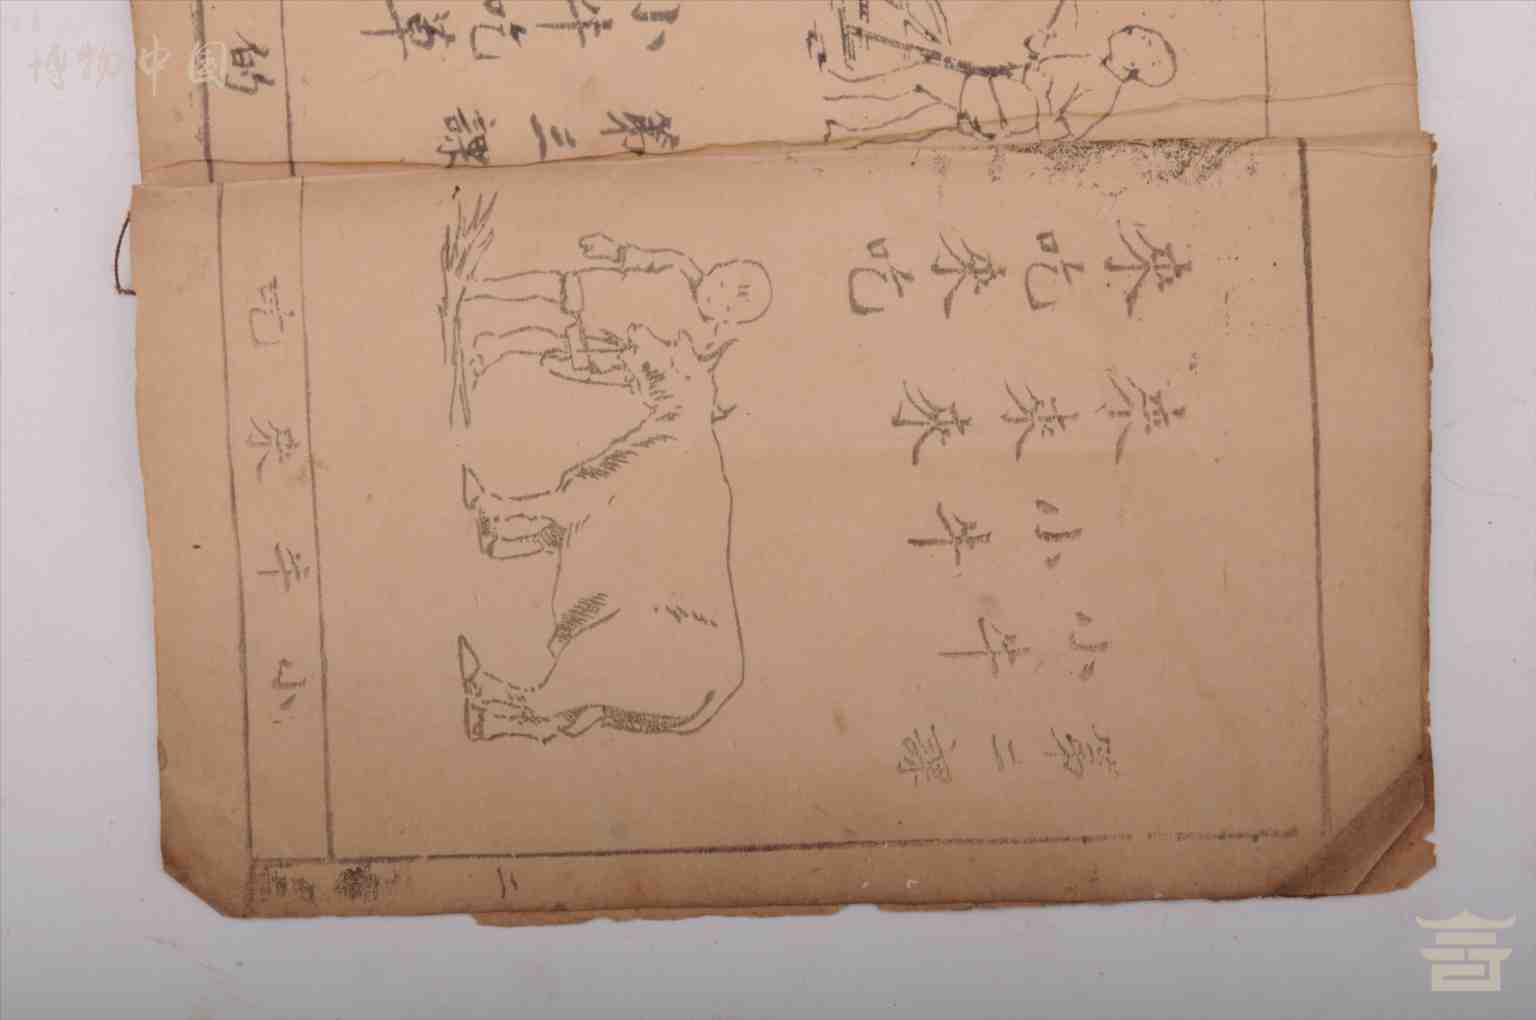 第二課
小牛
小牛
來來來
來吃來吃
小牛來吃
二
第三課
小牛吃草
的
博物中国